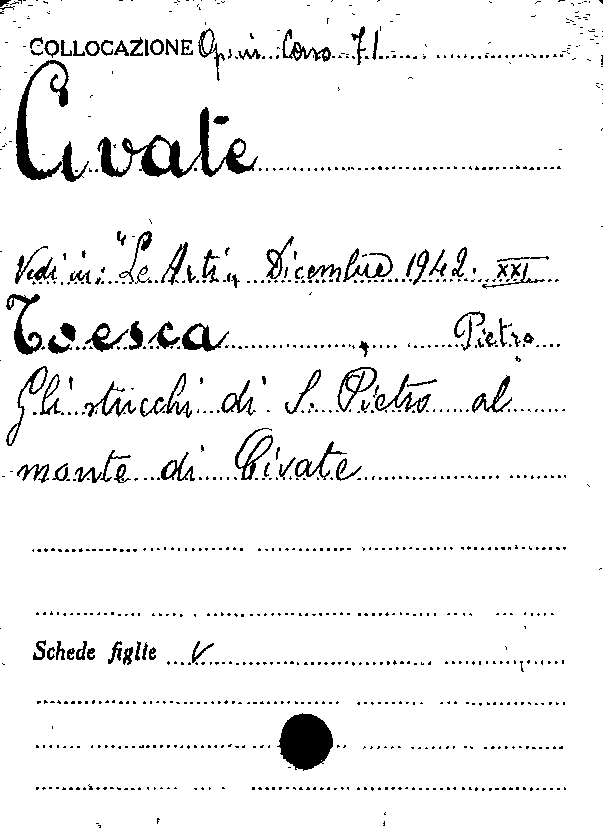 COLLOCAZIONE Op. in Corso 71
Civate
Vedi in: "Le Arti„ Dicembre 1942. XXI
Toesca, Pietro
Gli stucchi di S. Pietro al
monte di Civate
Schede figlie V